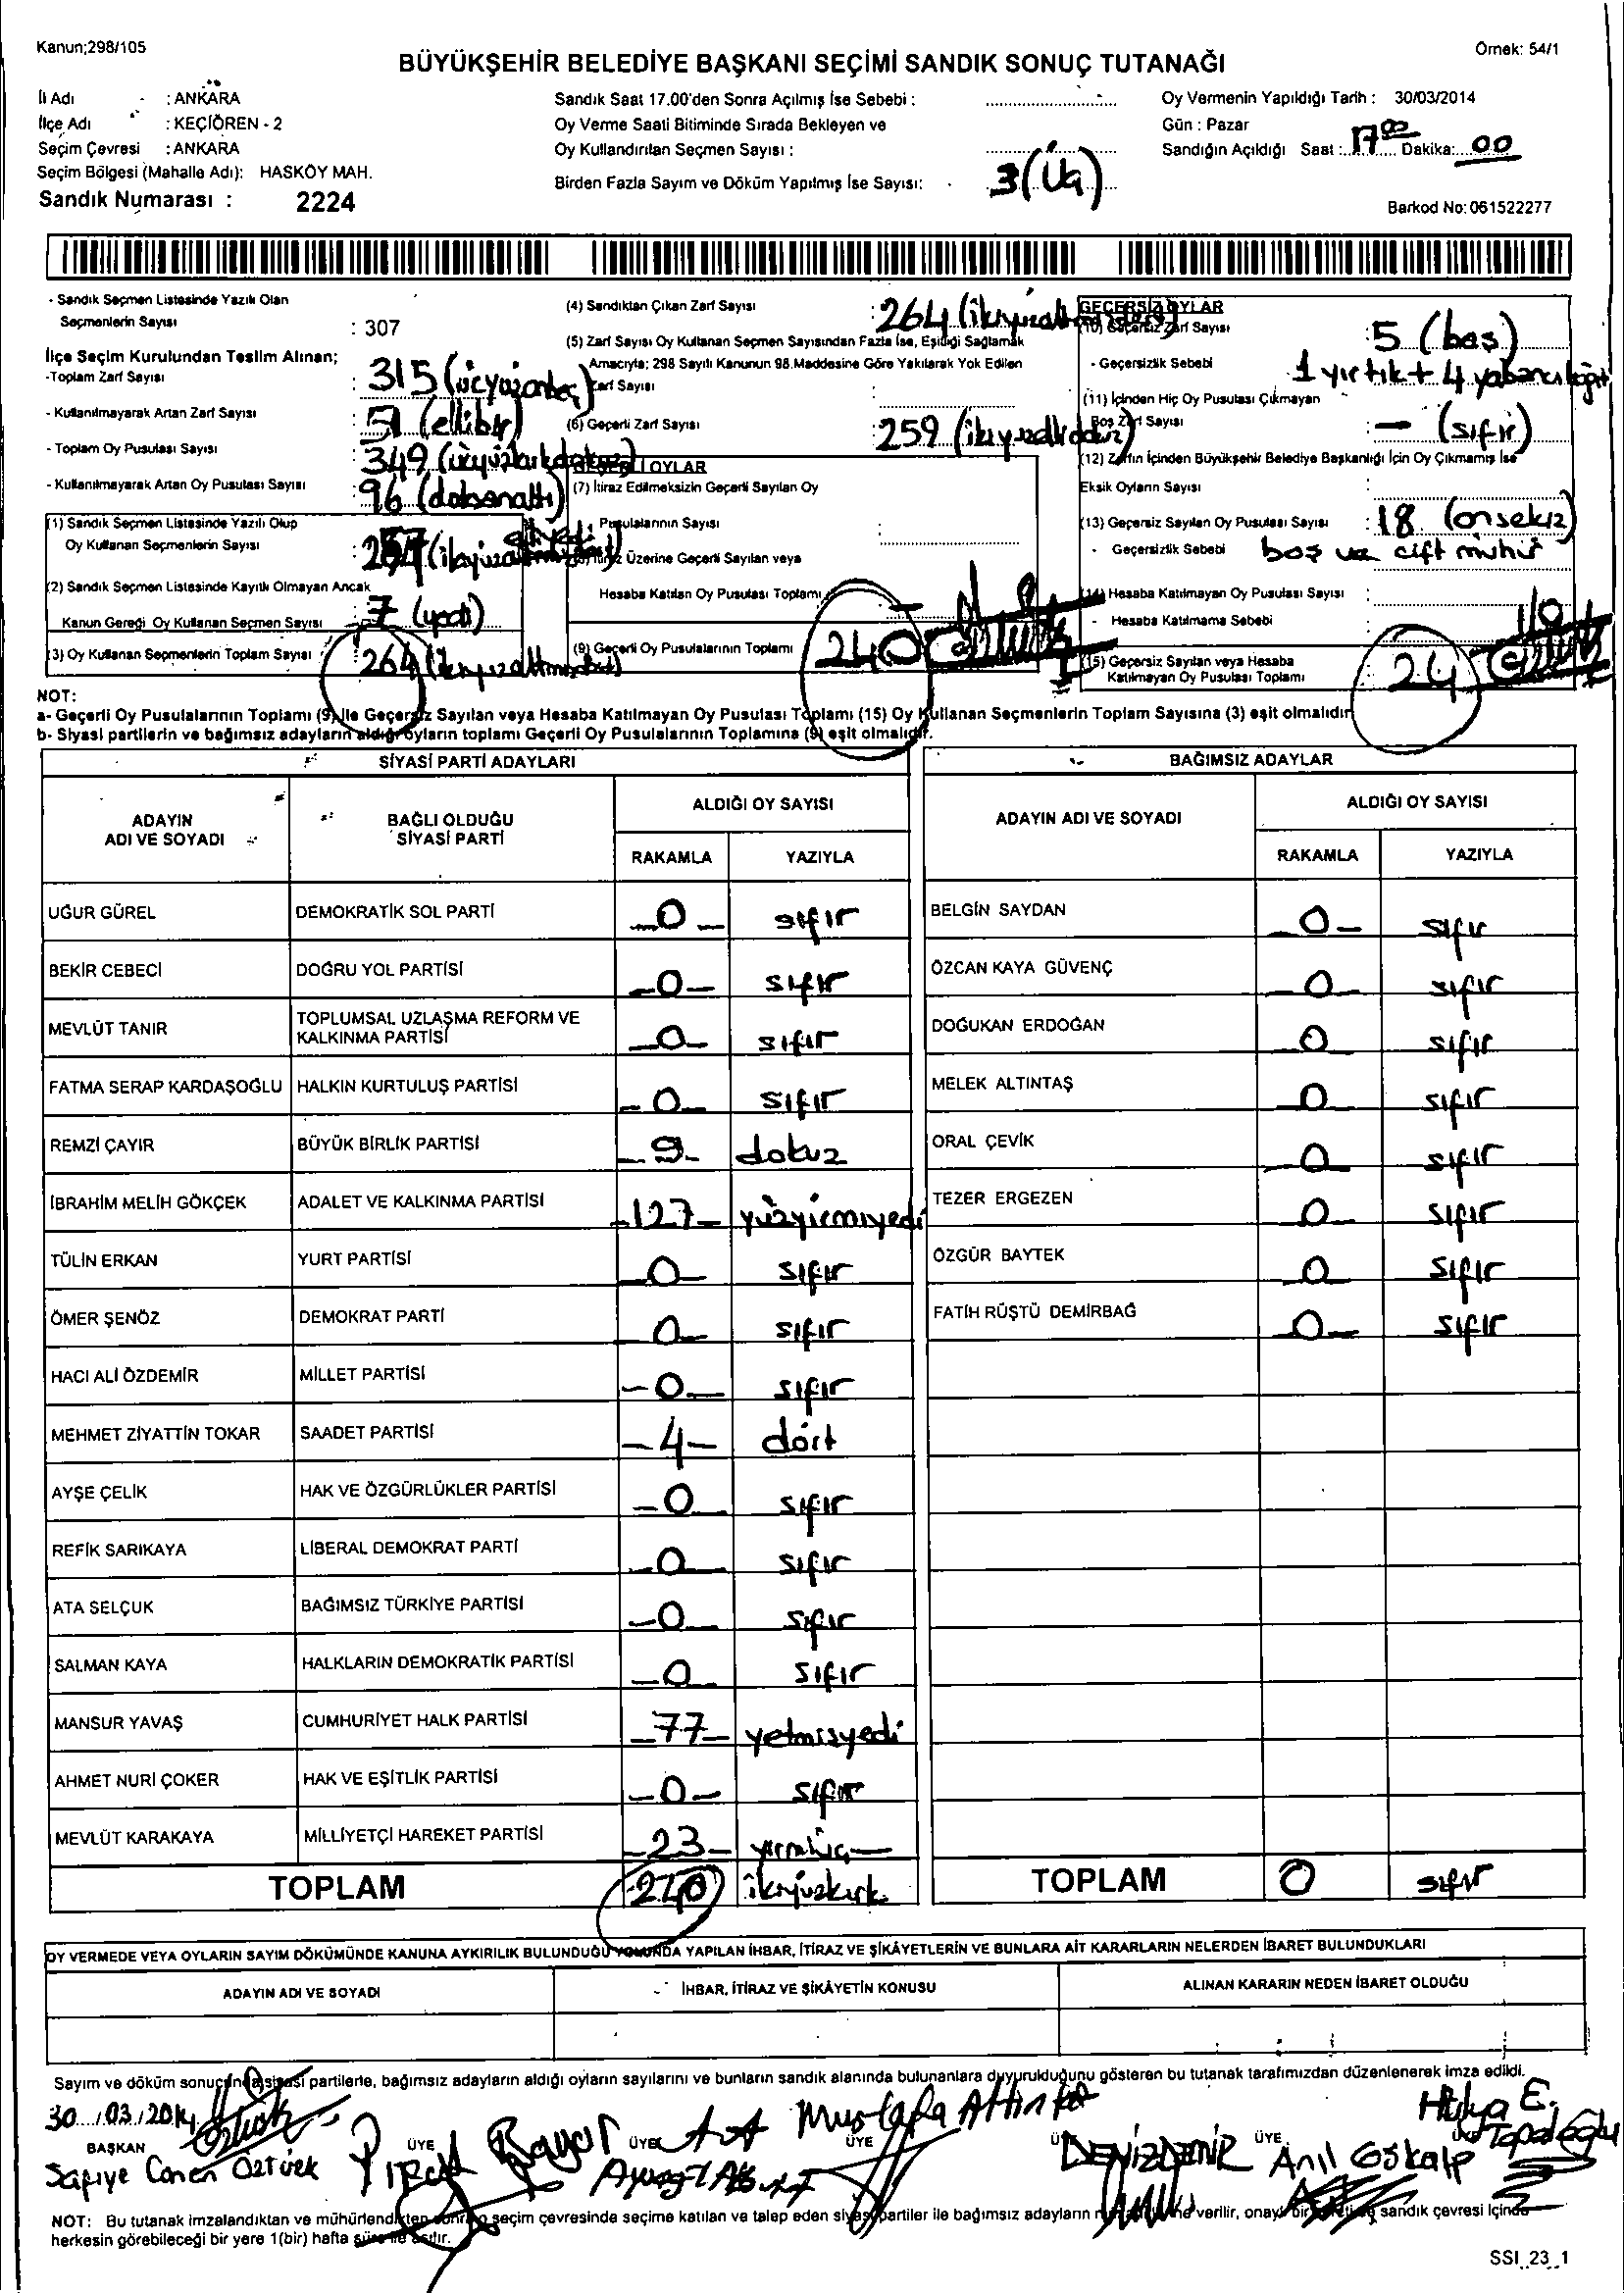 Kanun;298/105
Örnek: 54/1
BÜYÜKŞEHİR BELEDİYE BAŞKANI SEÇİMİ SANDIK SONUÇ TUTANAĞI
İl Adı : ANKARA
İlçe Adı : KEÇİÖREN - 2
Seçim Çevresi : ANKARA
Seçim Bölgesi (Mahalle Adı): HASKÖY MAH.
Sandık Numarası : 2224
Sandık Saat 17.00'den Sonra Açılmış İse Sebebi :
Oy Verme Saati Bitiminde Sırada Bekleyen ve
Oy Kullandırılan Seçmen Sayısı :
Birden Fazla Sayım ve Döküm Yapılmış İse Sayısı: 3 (Üç)
Oy Vermenin Yapıldığı Tarih : 30/03/2014
Gün : Pazar
Sandığın Açıldığı Saat : 17 00 Dakika: 00
Barkod No: 061522277
- Sandık Seçmen Listesinde Yazılı Olan
Seçmenlerin Sayısı : 307
İlçe Seçim Kurulundan Teslim Alınan;
-Toplam Zarf Sayısı : 315 (üçyüzonbeş)
- Kullanılmayarak Artan Zarf Sayısı : 51 (ellibir)
- Toplam Oy Pusulası Sayısı : 349 (üçyüzkırkdokuz)
- Kullanılmayarak Artan Oy Pusulası Sayısı : 96 (doksanaltı)
(1) Sandık Seçmen Listesinde Yazılı Olup
Oy Kullanan Seçmenlerin Sayısı : 257
(2) Sandık Seçmen Listesinde Kayıtlı Olmayan Ancak
Kanun Gereği Oy Kullanan Seçmen Sayısı : 7 (yedi)
(3) Oy Kullanan Seçmenlerin Toplam Sayısı : 264 (ikiyüzaltmışdört)
(4) Sandıktan Çıkan Zarf Sayısı : 264 (ikiyüzaltmışdört)
(5) Zarf Sayısı Oy Kullanan Seçmen Sayısından Fazla İse, Eşitliği Sağlamak
Amacıyla; 298 Sayılı Kanunun 98.Maddesine Göre Yakılarak Yok Edilen
Zarf Sayısı
(6) Geçerli Zarf Sayısı : 259 (ikiyüzellidokuz)
GEÇERLİ OYLAR
(7) İtiraz Edilmeksizin Geçerli Sayılan Oy
Pusulalarının Sayısı :
(8) İtiraz Üzerine Geçerli Sayılan veya
Hesaba Katılan Oy Pusulası Toplamı
(9) Geçerli Oy Pusulalarının Toplamı 240
GEÇERSİZ OYLAR
(10) Geçersiz Zarf Sayısı : 5 (beş)
- Geçersizlik Sebebi 1 yırtık + 4 yabancı kağıt
(11) İçinden Hiç Oy Pusulası Çıkmayan
Boş Zarf Sayısı : — (sıfır)
(12) Zarfın İçinden Büyükşehir Belediye Başkanlığı İçin Oy Çıkmamış İse
Eksik Oyların Sayısı :
(13) Geçersiz Sayılan Oy Pusulası Sayısı : 18 (onsekiz)
- Geçersizlik Sebebi boş ve çift mühür
(14) Hesaba Katılmayan Oy Pusulası Sayısı :
- Hesaba Katılmama Sebebi :
(15) Geçersiz Sayılan veya Hesaba
Katılmayan Oy Pusulası Toplamı 24
NOT:
a- Geçerli Oy Pusulalarının Toplamı (9) ile Geçersiz Sayılan veya Hesaba Katılmayan Oy Pusulası Toplamı (15) Oy Kullanan Seçmenlerin Toplam Sayısına (3) eşit olmalıdır.
b- Siyasi partilerin ve bağımsız adayların aldığı oyların toplamı Geçerli Oy Pusulalarının Toplamına (9) eşit olmalıdır.
SİYASİ PARTİ ADAYLARI
ADAYIN ADI VE SOYADI
BAĞLI OLDUĞU SİYASİ PARTİ
ALDIĞI OY SAYISI
RAKAMLA YAZIYLA
UĞUR GÜREL DEMOKRATİK SOL PARTİ -0- sıfır
BEKİR CEBECİ DOĞRU YOL PARTİSİ -0- sıfır
MEVLÜT TANIR TOPLUMSAL UZLAŞMA REFORM VE KALKINMA PARTİSİ -0- sıfır
FATMA SERAP KARDAŞOĞLU HALKIN KURTULUŞ PARTİSİ -0- sıfır
REMZİ ÇAYIR BÜYÜK BİRLİK PARTİSİ -9- dokuz
İBRAHİM MELİH GÖKÇEK ADALET VE KALKINMA PARTİSİ -127- yüzyirmiyedi
TÜLİN ERKAN YURT PARTİSİ -0- sıfır
ÖMER ŞENÖZ DEMOKRAT PARTİ -0- sıfır
HACI ALİ ÖZDEMİR MİLLET PARTİSİ -0- sıfır
MEHMET ZİYATTİN TOKAR SAADET PARTİSİ -4- dört
AYŞE ÇELİK HAK VE ÖZGÜRLÜKLER PARTİSİ -0- sıfır
REFİK SARIKAYA LİBERAL DEMOKRAT PARTİ -0- sıfır
ATA SELÇUK BAĞIMSIZ TÜRKİYE PARTİSİ -0- sıfır
SALMAN KAYA HALKLARIN DEMOKRATİK PARTİSİ -0- sıfır
MANSUR YAVAŞ CUMHURİYET HALK PARTİSİ -77- yetmişyedi
AHMET NURİ ÇOKER HAK VE EŞİTLİK PARTİSİ -0- sıfır
MEVLÜT KARAKAYA MİLLİYETÇİ HAREKET PARTİSİ -23- yirmiüç
TOPLAM 240 ikiyüzkırk
BAĞIMSIZ ADAYLAR
ADAYIN ADI VE SOYADI
ALDIĞI OY SAYISI
RAKAMLA YAZIYLA
BELGİN SAYDAN -0- sıfır
ÖZCAN KAYA GÜVENÇ -0- sıfır
DOĞUKAN ERDOĞAN 0 sıfır
MELEK ALTINTAŞ -0- sıfır
ORAL ÇEVİK -0- sıfır
TEZER ERGEZEN 0- sıfır
ÖZGÜR BAYTEK -0- sıfır
FATİH RÜŞTÜ DEMİRBAĞ -0- sıfır
TOPLAM 0 sıfır
OY VERMEDE VEYA OYLARIN SAYIM DÖKÜMÜNDE KANUNA AYKIRILIK BULUNDUĞU YOLUNDA YAPILAN İHBAR, İTİRAZ VE ŞİKÂYETLERİN VE BUNLARA AİT KARARLARIN NELERDEN İBARET BULUNDUKLARI
ADAYIN ADI VE SOYADI
İHBAR, İTİRAZ VE ŞİKÂYETİN KONUSU
ALINAN KARARIN NEDEN İBARET OLDUĞU
Sayım ve döküm sonucunda siyasi partilerle, bağımsız adayların aldığı oyların sayılarını ve bunların sandık alanında bulunanlara duyurulduğunu gösteren bu tutanak tarafımızdan düzenlenerek imza edildi.
30/03/2014
BAŞKAN ÜYE ÜYE ÜYE ÜYE ÜYE ÜYE
Safiye Canen Öztürk
Mustafa
DENİZ DEMİR
Anıl Göskalp
Hülya E. Topaloğlu
NOT: Bu tutanak imzalandıktan ve mühürlendikten sonra seçim çevresinde seçime katılan ve talep eden siyasi partiler ile bağımsız adayların verilir, onaylı bir sureti de sandık çevresi içinde
herkesin görebileceği bir yere 1(bir) hafta süre ile asılır.
SSI_23_1